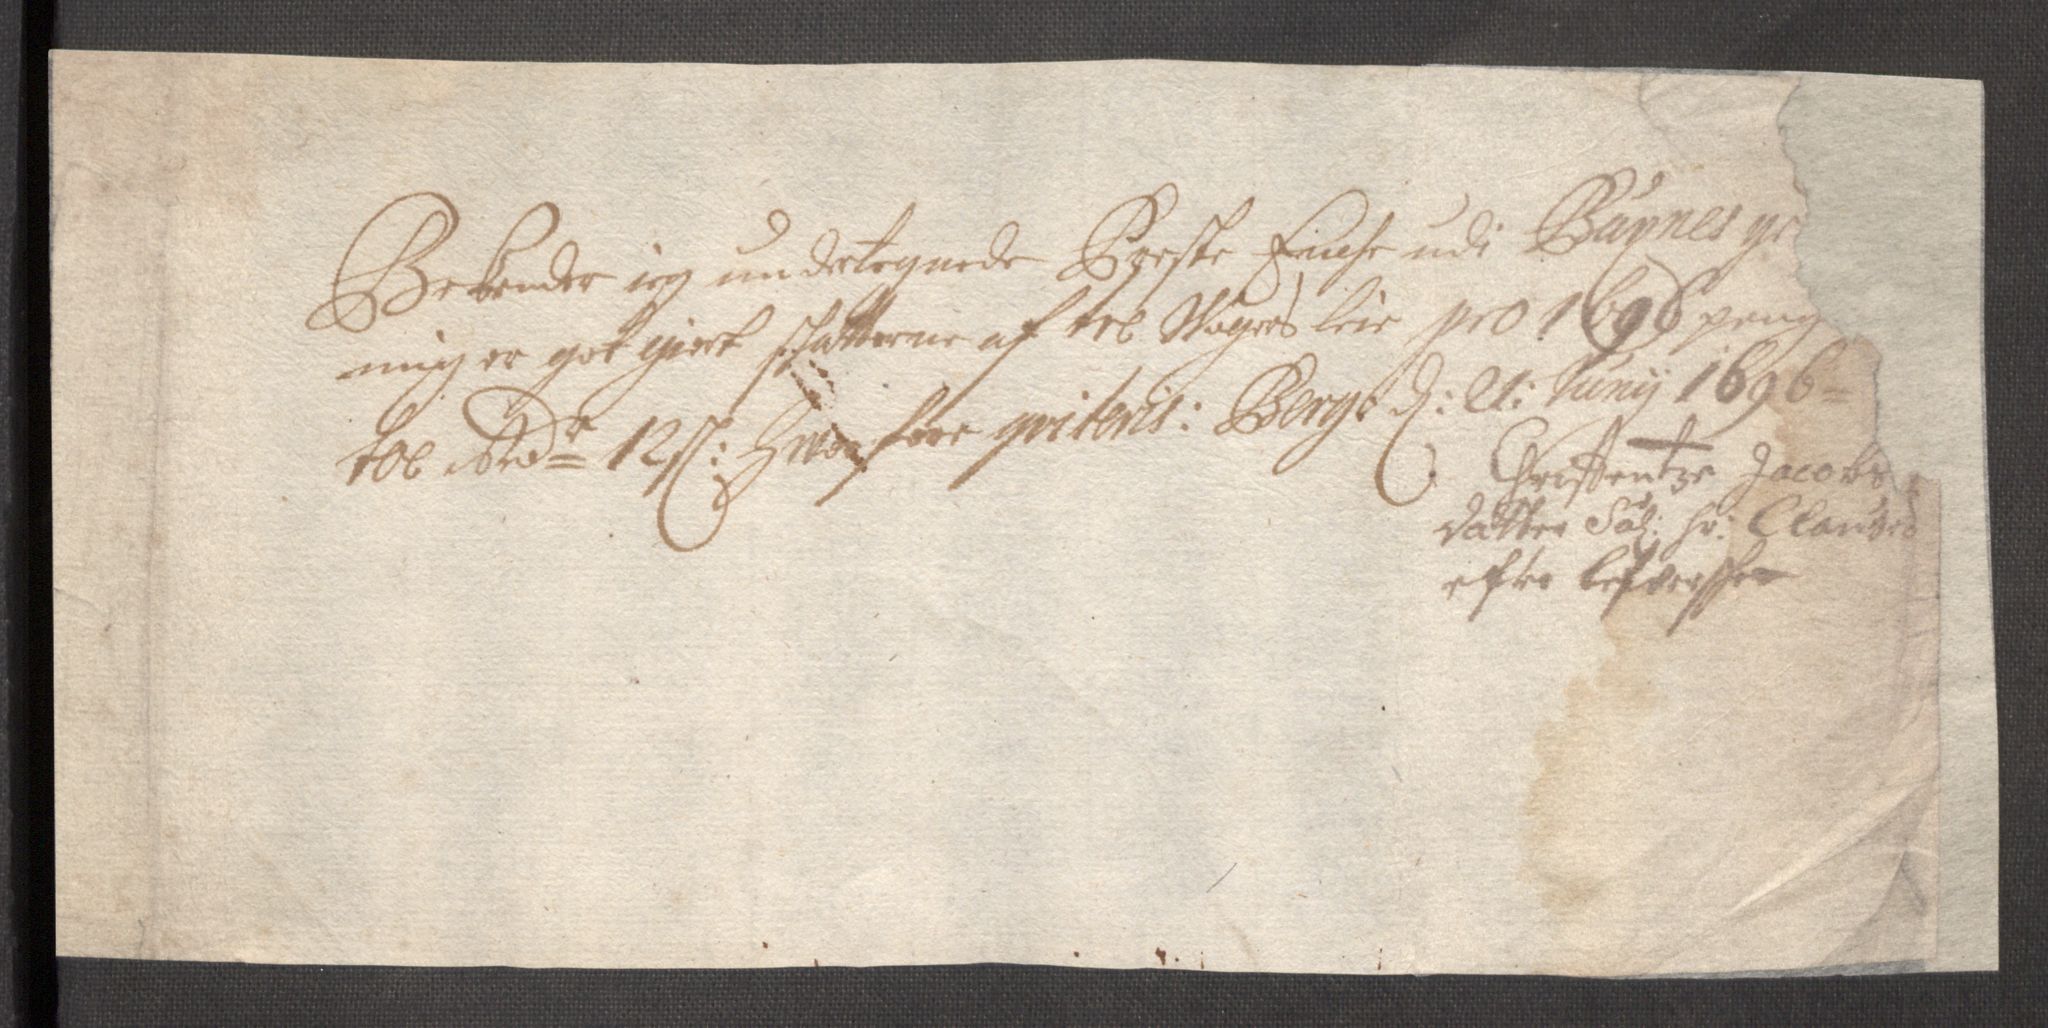 Bekender ieg undertegnede Preste Enche udi Bøxnes gi
mig er got giort schatterne af treb Wogers leie pro 1696 peng
tob Rdr 12 s: Hvor fore qviteris: Berge d: 21: Juny 1696
Christentze Jacobs
datter Sal: hr: Clauses
efter lefversche